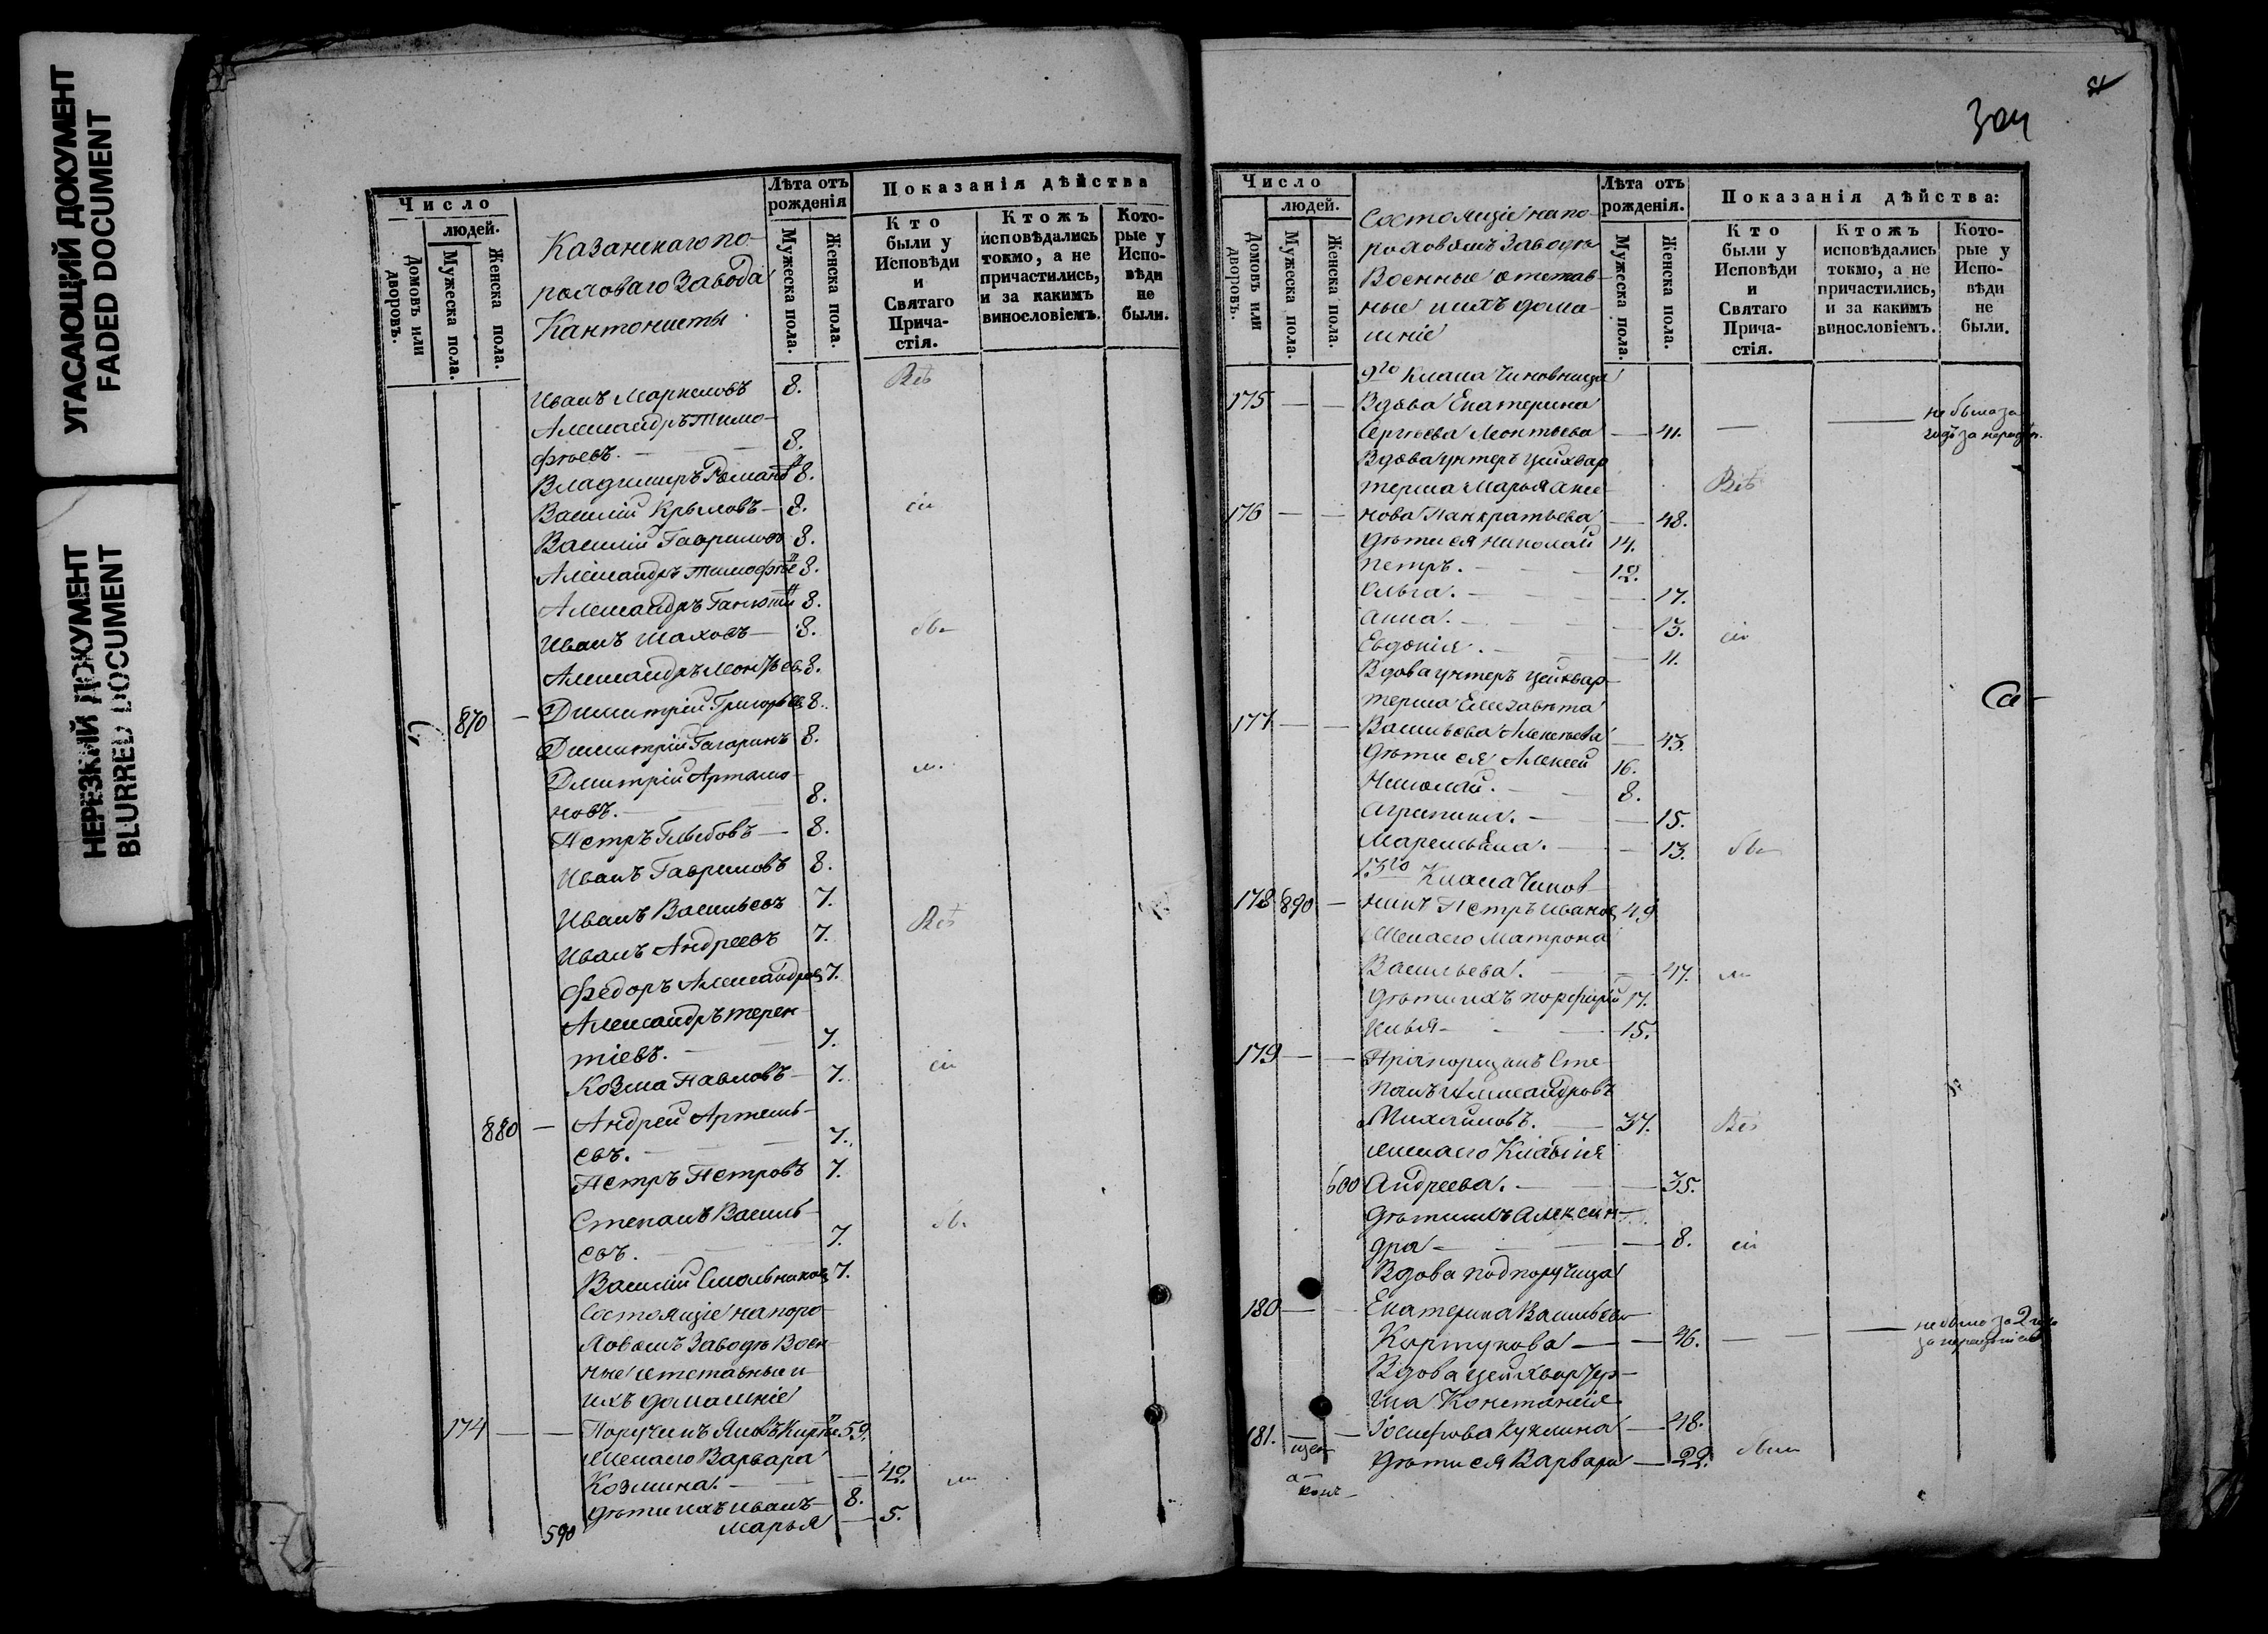 УГАСАЮЩИЙ ДОКУМЕНТ
FADED DOCUMENT
НЕРЕЗКИЙ ДОКУМЕНТ
BLURRED DOCUMENT
Число
людей.
Домовъ или дворовъ.
Мужеска пола.
Женска пола.
Казанскаго по-
роховаго Завода
Кантонисты
Лѣта отъ рожденія
Мужеска пола.
Женска пола.
Показанія дѣйства
Кто были у Исповѣди и Святаго Прича-стія.
Ктожъ исповѣдались токмо, а не причастились, и за какимъ винословіемъ.
Кото-рые у Испо-вѣди не были.
Иванъ Маркеловъ 8. Всѣ
Александръ Тимо-
фѣевъ. 8.
Владимиръ Романъ 8.
Василій Крыловъ 8. сіи
Василій Гавриловъ 8.
Александръ Тимофѣе 8.
Александръ 8.
Иванъ Шаховъ 8. бы
Александръ Леонтьев 8.
870 Димитрій Григорьев 8.
Димитрій Гагаринъ 8.
Дмитрій Артамо- ли.
новъ. 8.
Петръ Глѣбовъ 8.
Иванъ Гавриловъ 8.
Иванъ Васильевъ 7. Всѣ
Иванъ Андреевъ 7.
Федоръ Александров 7.
Александръ Терен-
тіевъ. 7.
Козма Павловъ 7. сіи
880 Андрей Артемь-
евъ. 7.
Петръ Петровъ 7.
Степанъ Василь- бы
евъ. 7.
Василій Смольников 7.
Состоящіе на поро-
ховомъ Заводѣ Воен-
ные отставные и
ихъ домашніе
174 Поручикъ Яковъ 59.
Жена его Варвара
Козмина. 42. ли
Дѣти ихъ Иванъ 8.
590 Марья 5.
304
Число
людей.
Домовъ или дворовъ.
Мужеска пола.
Женска пола.
Состоящіе на по-
роховомъ Заводѣ
Военные отстав-
ные и ихъ дома-
шніе
Лѣта отъ рожденія.
Мужеска пола.
Женска пола.
Показанія дѣйства:
Кто были у Исповѣди и Святаго Прича-стія.
Ктожъ исповѣдались токмо, а не причастились, и за какимъ винословіемъ.
Кото-рые у Испо-вѣди не были.
9го Класа Чиновница
175 Вдова Екатерина не была за
Сергѣева Леонтьева 41. годъ за нерадѣн.
Вдова унтеръ цейхвар
терша Марья Симе Всѣ
176 нова Панкратьева 48.
Дѣти ея Николай 14.
Петръ. 12.
Ольга. 17.
Анна. 13. сіи
Евдокія. 11.
Вдова унтеръ цейхвар-
терша Елизавета
177 Васильева Алексѣева 43.
Дѣти ея Алексѣй 16.
Николай. 8.
Агрипина. 15.
Марельяна. 13. бы
13го Класа Чинов-
178 890 никъ Петръ Иванов 49
Жена его Матрона
Васильева. 47. ли
Дѣти ихъ Порфирій 17.
Илья 15.
179 Прапорщикъ Сте-
панъ Александровъ
Михайловъ. 37. Всѣ
жена его Клавдія
600 Андреева. 35.
Дѣти ихъ Алексан-
дра 8. сіи
Вдова подпоручица
180 Екатерина Васильева не была за 2 года
Картукова 46. за нерадѣніемъ
Вдова цейхвартер-
ша Констансія
181. Іосифова Куклина 48.
Дѣти ея Варвара 22. были